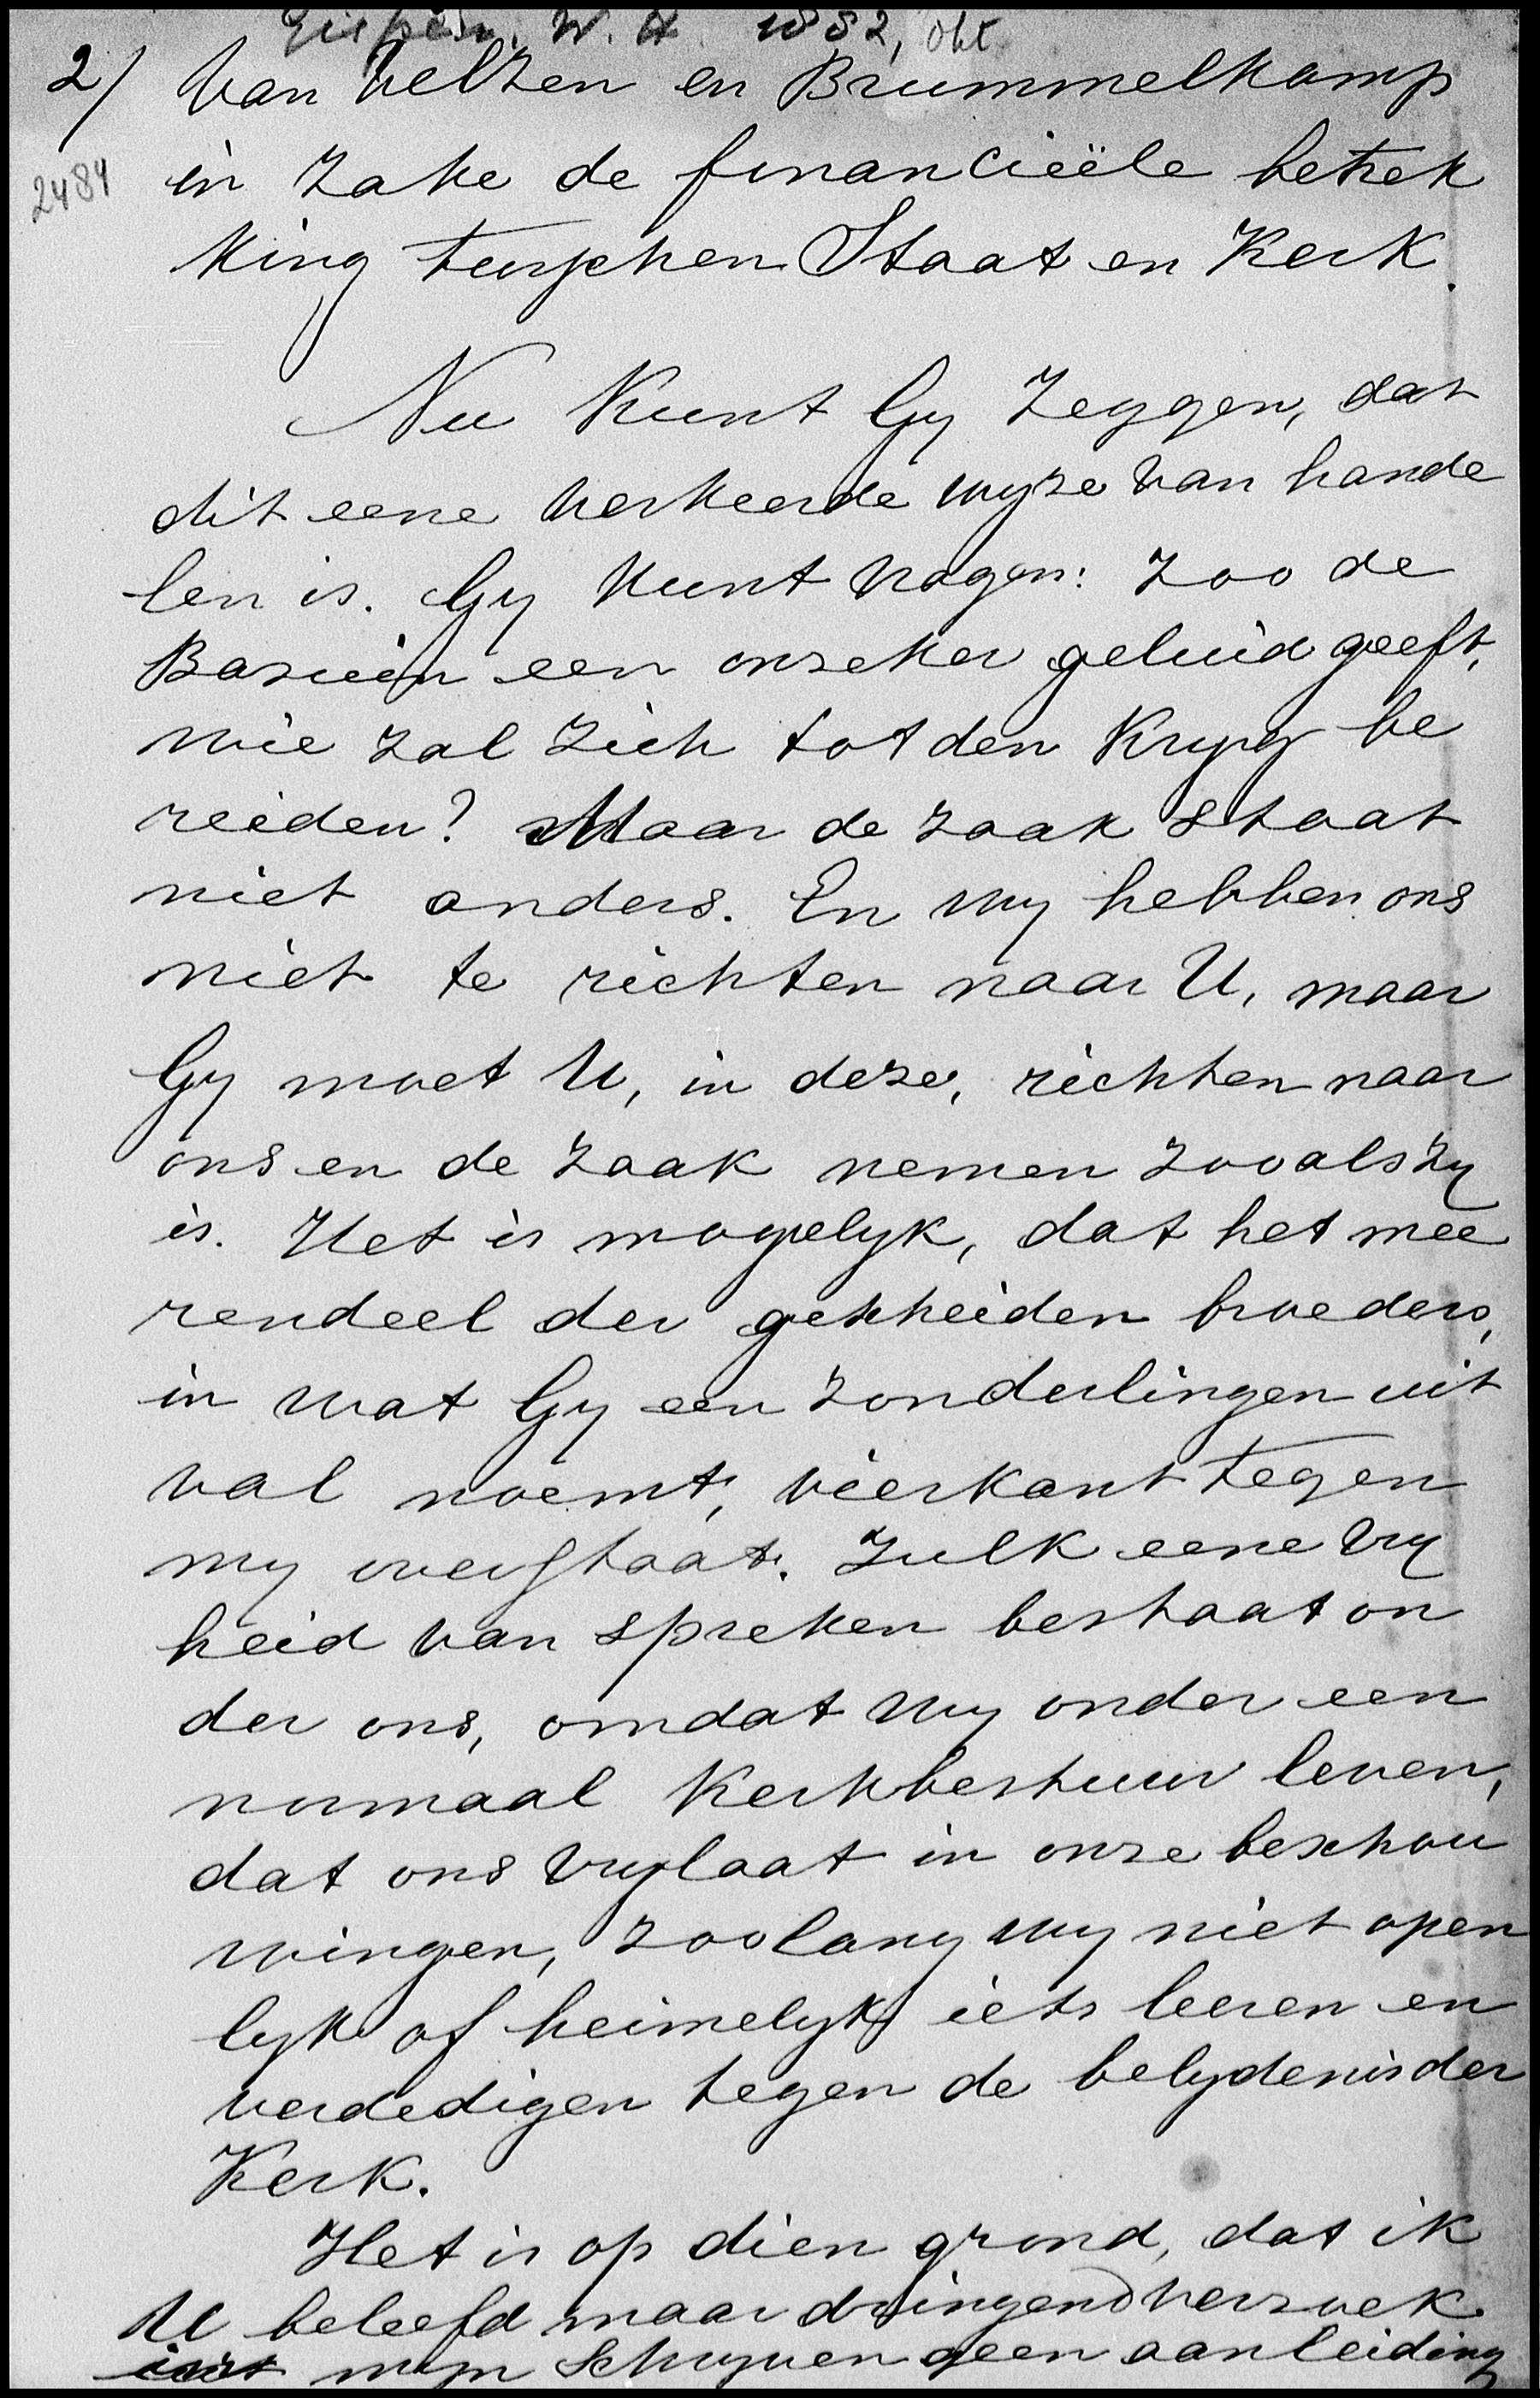 Gispen, W. H. 1882, okt
2/ Van Velzen en Brummelkamp
2484
in zake de financieële betrek
king tusschen Staat en Kerk.
Nu kunt Gy zeggen, dat
dit eene verkeerde wyze van hande
len is. Gy kunt vragen: zoo de
Bazuin een onzeker geluid geeft,
wie zal zich tot den Kryg be
reiden? Maar de zaak staat
niet anders. En wy hebben ons
niet te richten naar U, maar
Gy moet U, in deze, richten naar
ons en de zaak nemen zooals zy
is. Het is mogelyk, dat het mee
rendeel der gescheiden broeders,
in wat Gy een zonderlingen uit
val noemt, vierkant tegen
my overstaat. Zulk eene vry
heid van spreken bestaat on
der ons, omdat wy onder een
normaal Kerkbestuur leven,
dat ons vrylaat in onze beschou
wingen, zoolang wy niet open
lyk of heimelyk iets leeren en
verdedigen tegen de belydenis der
Kerk.
Het is op dien grond, dat ik
U beleefd maar dringend verzoek
mijn schryven geen aanleiding